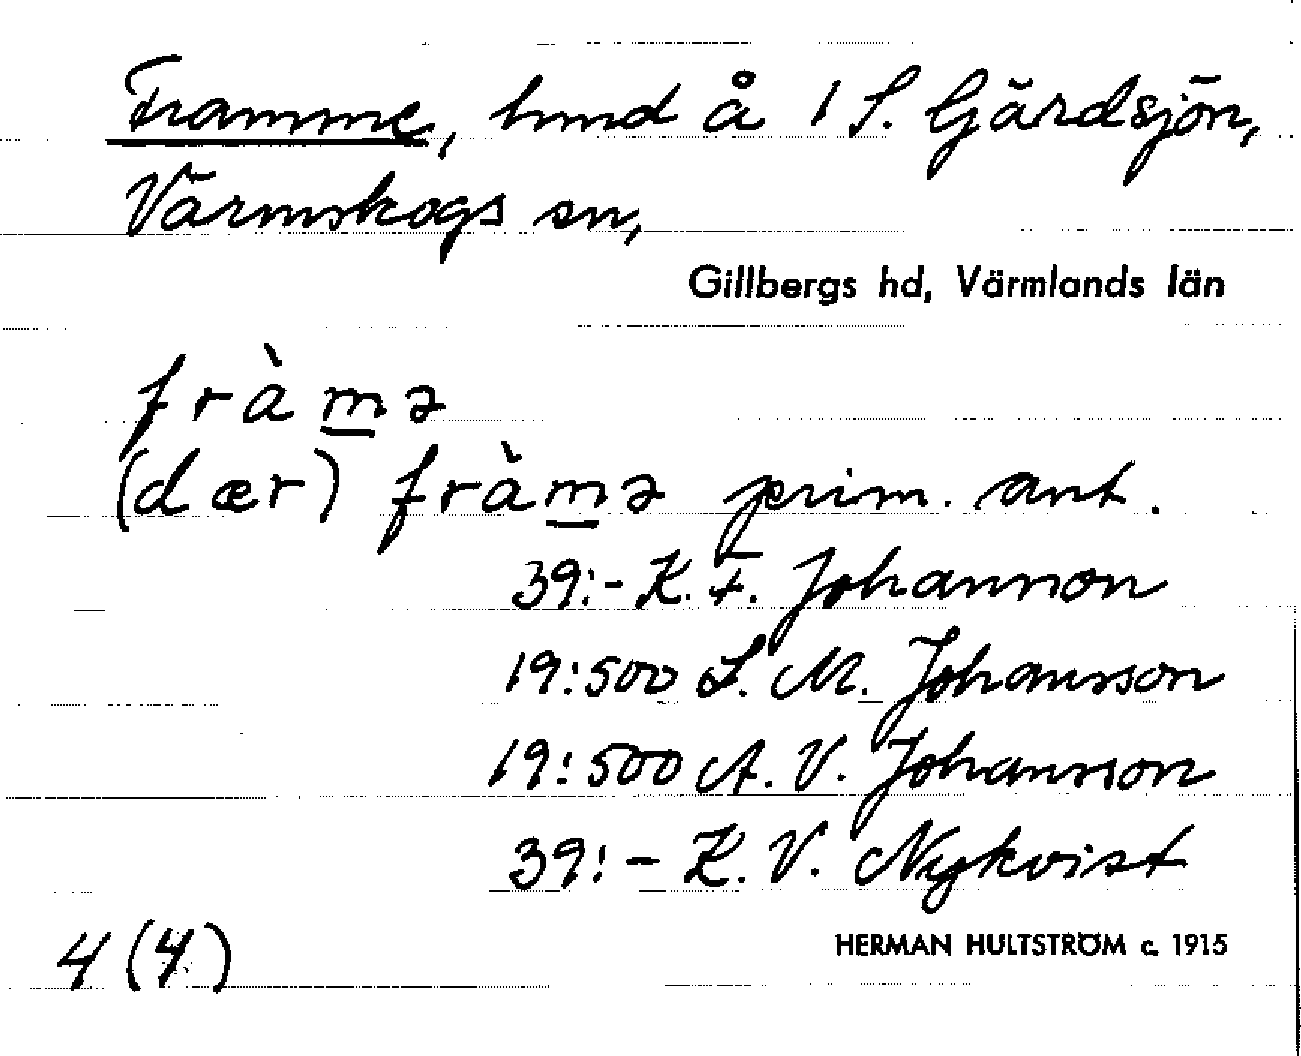 Framme, hmd å 1 S. Gärdsjön,
Värmskogs sn,
Gillbergs hd, Värmlands län
fràmə
(dær) fràmə prim. ant.
39:- K. F. Johansson
19:500 L. M. Johansson
19:500 A. V. Johansson
39:- K. V. Nykvist
4 (4)
HERMAN HULTSTRÖM c. 1915